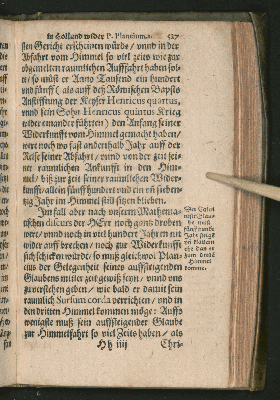 in Holland wider P. Plancium. 527
sten Gericht erscheinen würde / vnnd in der
Abfahrt vom Himmel so viel zeits wie zur
obgemelten raumlichen Aufffahrt haben sol-
te / so müst er Anno Tausend ein hundert
vnd fünff ( als auff deß Römischen Bapsts
Anstifftung der Keyser Henricus quartus,
vnd sein Sohn Henricus quintus Krieg
wider einander führten ) den Anfang seiner
Widerkunfft vom Himmel gemacht haben /
wert noch wo fast anderthalb Jahr auff der
Reise seiner Abfahrt / vnnd von der zeit sei-
ner raumlichen Ankunfft in den Him-
mel / biß zur zeit seiner raumlichen Wider-
kunfft / allein fünff hundert vnd ein vñ sieben-
zig Jahr im Himmel still sitzen blieben.
Im fall aber nach vnserm Mathema-
tischen discurs der HErr noch gantz droben
wer / vnnd noch in viel hundert Jahren nit
wider auff brechen / noch zur Widerkunfft
sich schicken würde / so muß gleichwol Plan-
cius der Gelegenheit seines auffsteigenden
Glaubens mitler zeit gewiß seyn / vnnd vns
zuverstehen geben / wie bald er damit sein
raumlich Sursum corda verrichten / vnd in
den dritten Himmel kommen möge. Auffs
wenigste muß sein auffsteigender Glaube
zur Himmelfahrt so viel Zeits haben / als
Hh iiij Chri-
Der Calvi
Glau-
be muß
Jahr
ehe dan er
zum
Himmel
komme.